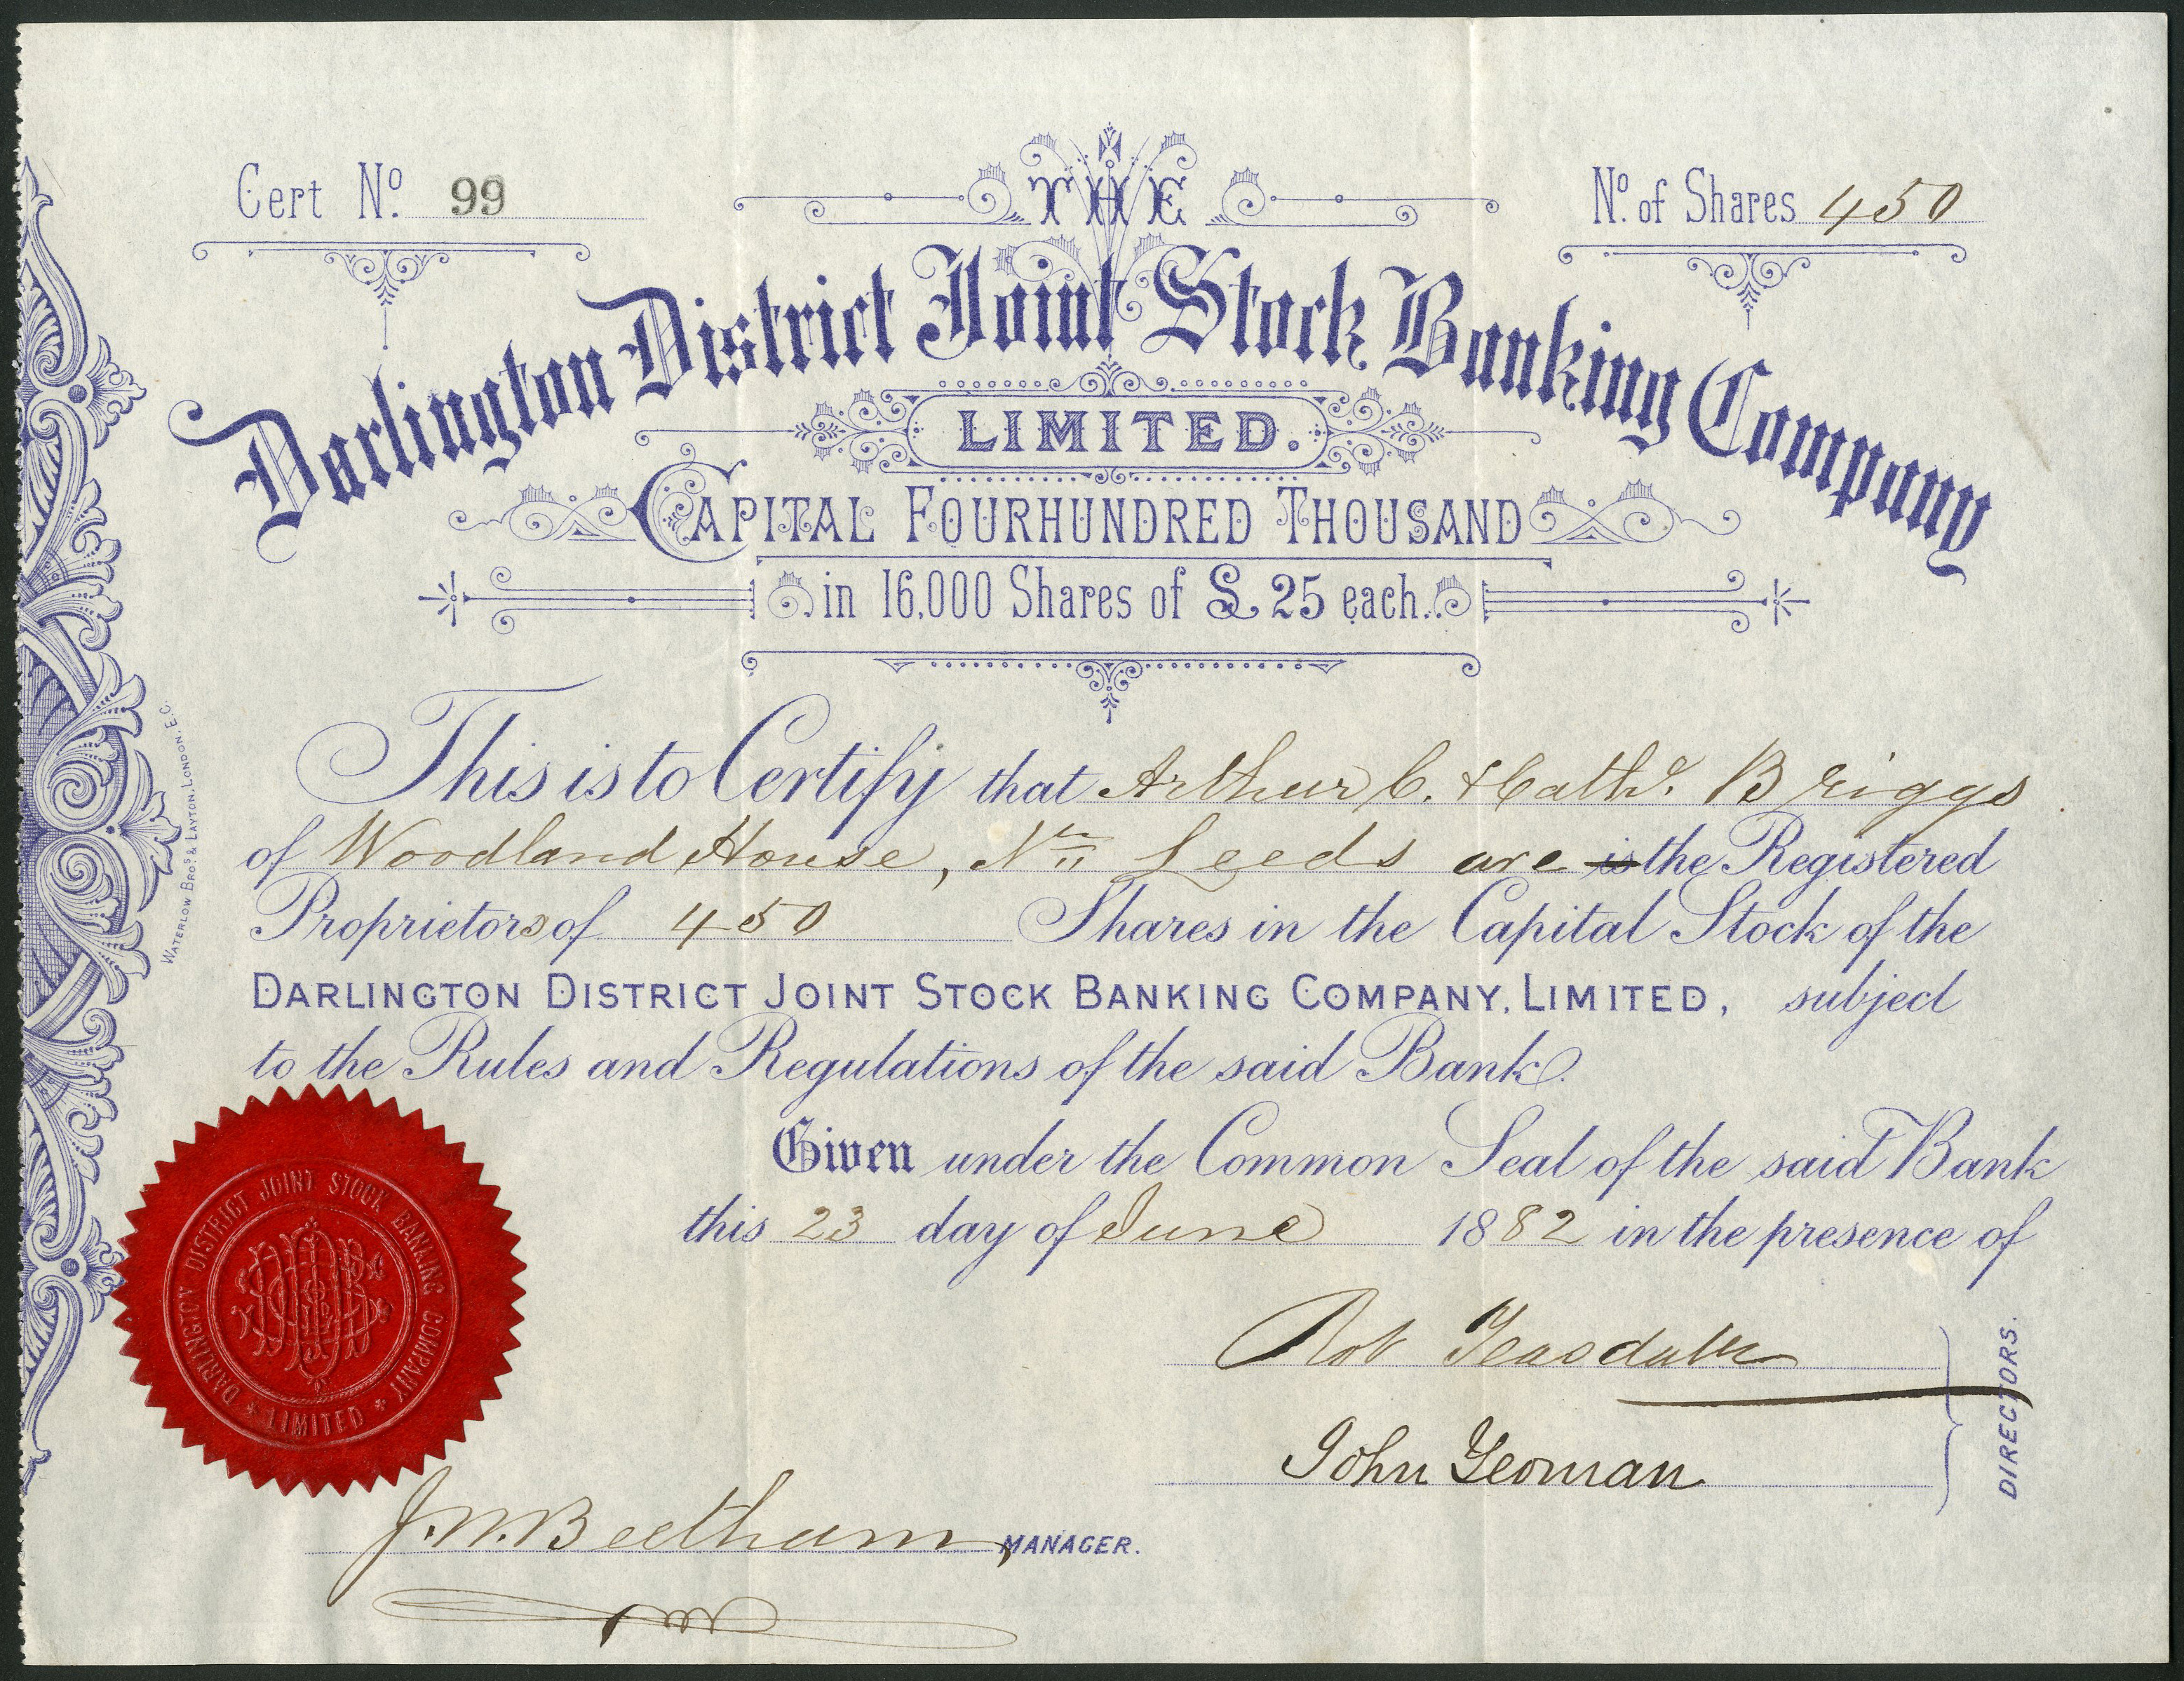 Cert No. 99
No. of Shares 450
THE
Darlington District Joint Stock Banking Company
LIMITED.
CAPITAL FOURHUNDRED THOUSAND
in 16,000 Shares of £25 each.
This is to Certify that Arthur C. & Cathe. Briggs
of Woodland House, Nr. Leeds are is the Registered
Proprietors of 450 Shares in the Capital Stock of the
DARLINGTON DISTRICT JOINT STOCK BANKING COMPANY, LIMITED, subject
to the Rules and Regulations of the said Bank.
Given under the Common Seal of the said Bank
this 23 day of June 1882 in the presence of
Rob Teasdale
John Yeoman
DIRECTORS.
J. W. Beetham, MANAGER.
DARLINGTON DISTRICT JOINT STOCK BANKING COMPANY
LIMITED
WATERLOW BROS. & LAYTON, LONDON, E.C.